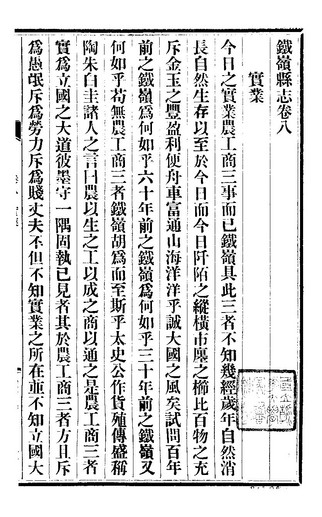 鐵嶺縣志卷八
實業
今日之實業農工商三事而已鐵嶺具此三者不知幾經歲年自然消
長自然生存以至於今日而今日阡陌之縱橫市廛之櫛比百物之充
斥金玉之豐盈利便舟車富通山海洋洋乎誠大國之風矣試問百年
前之鐵嶺爲何如乎六十年前之鐵嶺爲何如乎三十年前之鐵嶺又
何如乎苟無農工商三者鐵嶺胡爲而至斯乎太史公作貨殖傳盛稱
陶朱白圭諸人之言曰農以生之工以成之商以通之是農工商三者
實爲立國之大道彼墨守一隅固執己見者其於農工商三者方且斥
爲愚氓斥爲勞力斥爲賤丈夫不但不知實業之所在並不知立國大